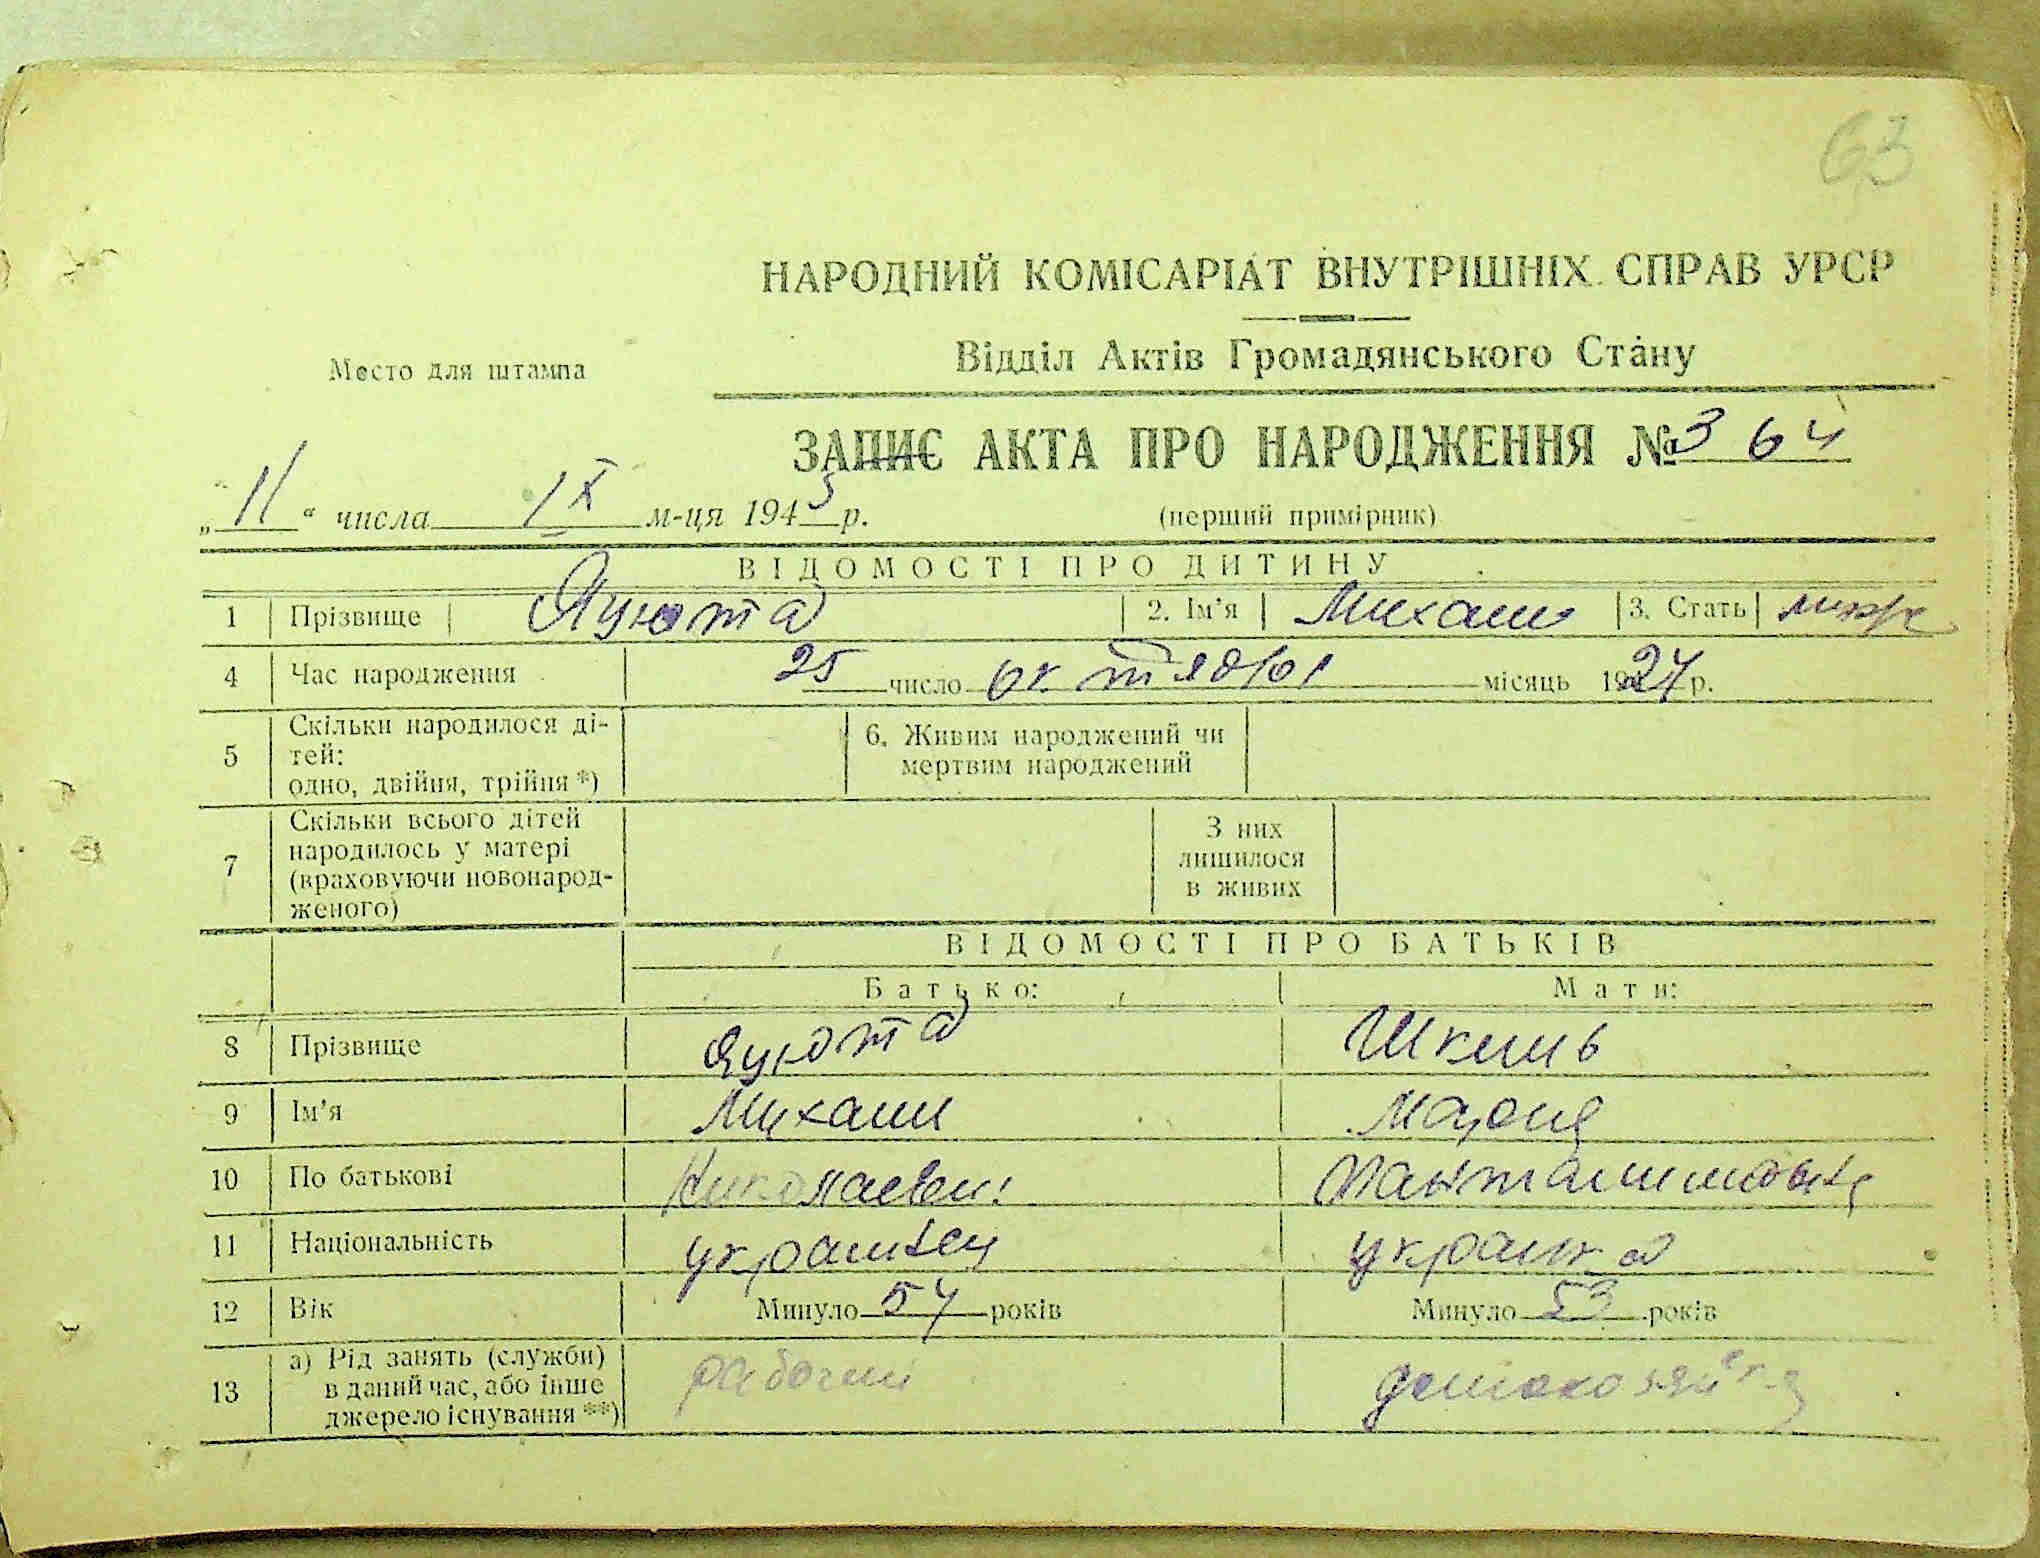 63
НАРОДНИЙ КОМІСАРІАТ ВНУТРІШНІХ СПРАВ УРСР
Відділ Актів Громадянського Стану
Место для штампа
ЗАПИС АКТА ПРО НАРОДЖЕННЯ № 364
„11“ числа IX м-ця 1945 р.
(перший примірник)
ВІДОМОСТІ ПРО ДИТИНУ
1 Прізвище Яцюта 2. Ім'я Михаил 3. Стать муж
4 Час народження 25 число октября місяць 1924 р.
5 Скільки народилося ді-
тей:
одно, двійня, трійня *)
6. Живим народжений чи
мертвим народжений
7 Скільки всього дітей
народилось у матері
(враховуючи новонарод-
женого)
З них
лишилося
в живих
ВІДОМОСТІ ПРО БАТЬКІВ
Батько: Мати:
8 Прізвище Яцюта Шкиль
9 Ім'я Михаил Мария
10 По батькові Николаевич
11 Національність украинец украинка
12 Вік Минуло 54 років Минуло 53 років
13 а) Рід занять (служби)
в даний час, або інше
джерело існування **)
рабочий домохозяйка